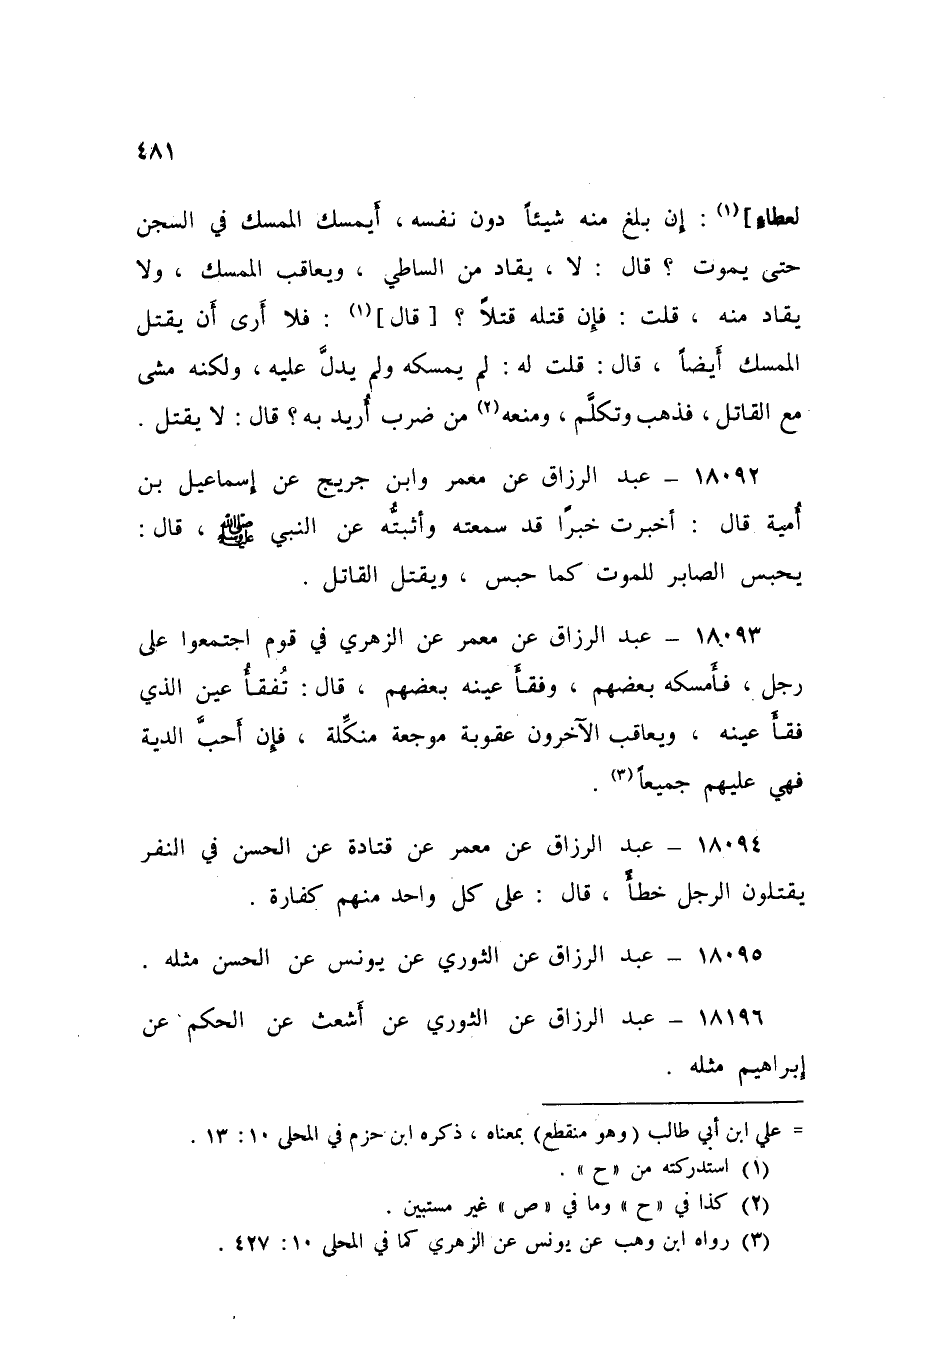 ٤٨١
لعطاء](١) : إن بلغ منه شيئاً دون نفسه ، أَيمسك الممسك في السجن
حتى يموت ؟ قال : لا ، يقاد من الساطي ، ويعاقب الممسك ، ولا
يقاد منه ، قلت : فإن قتله قتلاً ؟ [ قال ](١) : فلا أَرى أَن يقتل
الممسك أَيضاً ، قال : قلت له : لم يمسكه ولم يدلَّ عليه ، ولكنه مشى
مع القاتل ، فذهب وتكلَّم ، ومنعه(٢) من ضرب أُريد به ؟ قال : لا يقتل .
١٨٠٩٢ – عبد الرزاق عن معمر وابن جريج عن إسماعيل بن
أُمية قال : أخبرت خبرًا قد سمعته وأثبتُّه عن النبي ﷺ ، قال :
يحبس الصابر للموت كما حبس ، ويقتل القاتل .
١٨٠٩٣ – عبد الرزاق عن معمر عن الزهري في قوم اجتمعوا على
رجل ، فأَمسكه بعضهم ، وفقأَ عينه بعضهم ، قال : تُفقأُ عين الذي
فقأَ عينه ، ويعاقب الآخرون عقوبة موجعة منكِّلة ، فإن أَحبَّ الدية
فهي عليهم جميعاً(٣) .
١٨٠٩٤ – عبد الرزاق عن معمر عن قتادة عن الحسن في النفر
يقتلون الرجل خطأً ، قال : على كل واحد منهم كفارة .
١٨٠٩٥ – عبد الرزاق عن الثوري عن يونس عن الحسن مثله .
١٨١٩٦ – عبد الرزاق عن الثوري عن أَشعث عن الحكم عن
إبراهيم مثله .
= علي ابن أبي طالب (وهو منقطع) بمعناه ، ذكره ابن حزم في المحلى ١٠ : ١٣ .
(١) استدركته من «ح» .
(٢) كذا في «ح» وما في «ص» غير مستبين .
(٣) رواه ابن وهب عن يونس عن الزهري كما في المحلى ١٠ : ٤٢٧ .